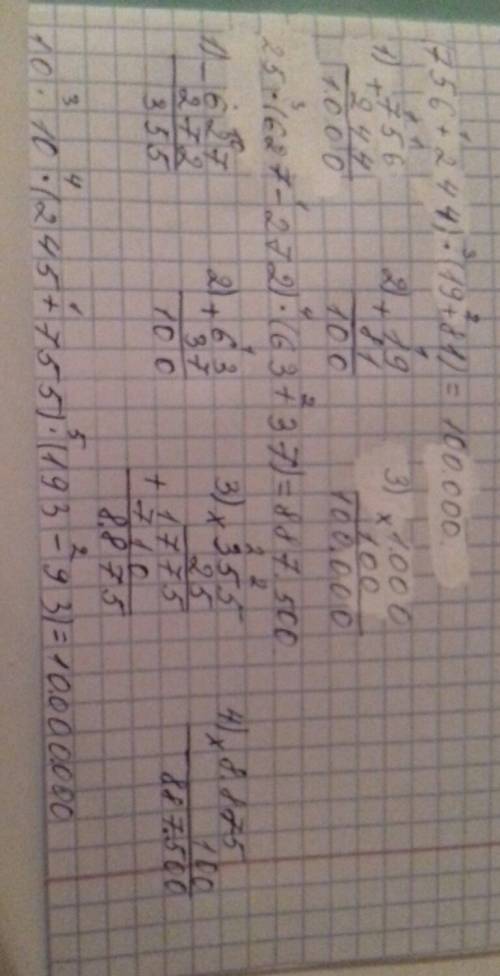 (756+244)·(19+81)=100.000
1) +756
244
1000
2) +19
81
100
3) ×1.000
100
100.000
25·(627-272)·(63+37)=887.500
1) -627
272
355
2) +63
37
100
3) ×355
25
+1775
710
8.875
4) ×8.875
100
887.500
10·10·(245+755)·(193-93)=10.000.000